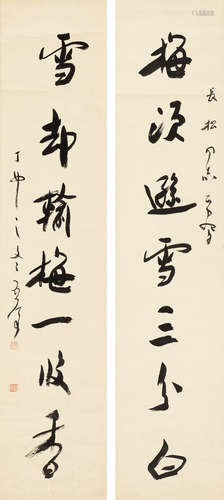 長松同志
梅須遜雪三分白
雪却輸梅一段香